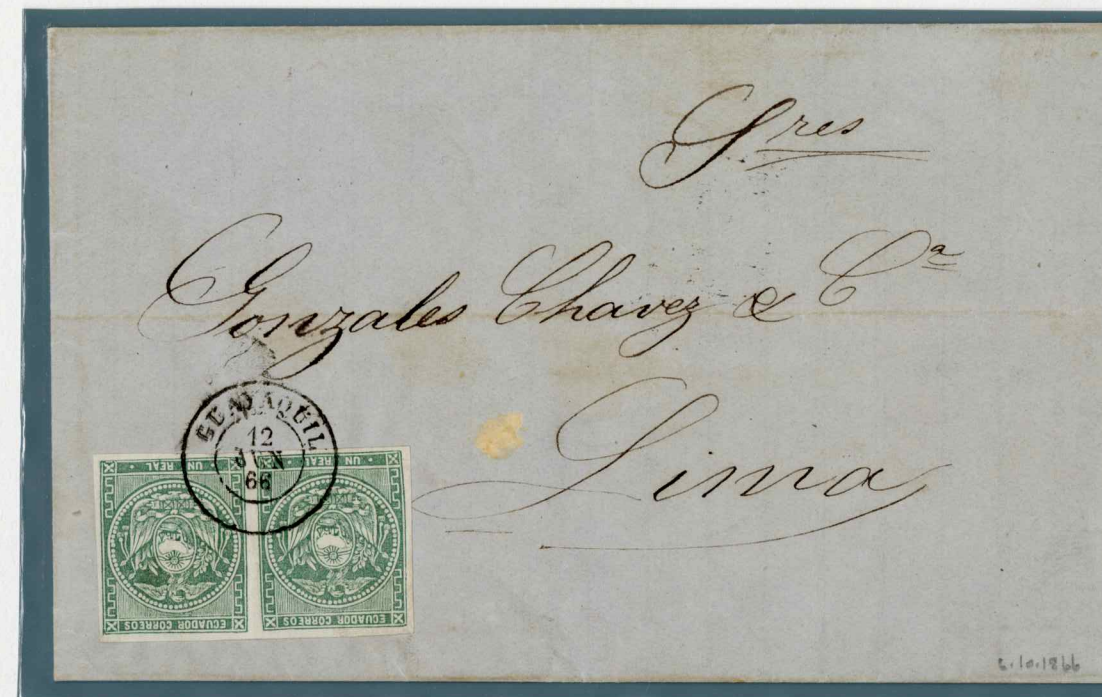 Sres
Gonzales Chavez & Cª
Lima
GUAYAQUIL
12
JUN
66
UN REAL · UN REAL
ECUADOR CORREOS ECUADOR CORREOS
6.10.1866